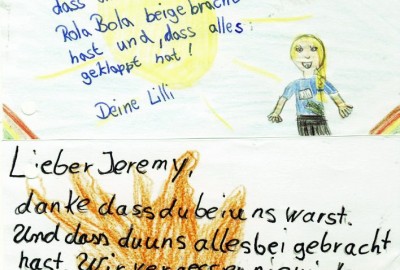 dass d
Rola Bola beigebracht
hast und, dass alles
geklappt hat!
Deine Lilli
Lieber Jeremy,
danke dass du bei uns warst.
Und dass du uns alles bei gebracht
hast. Wir vergessen